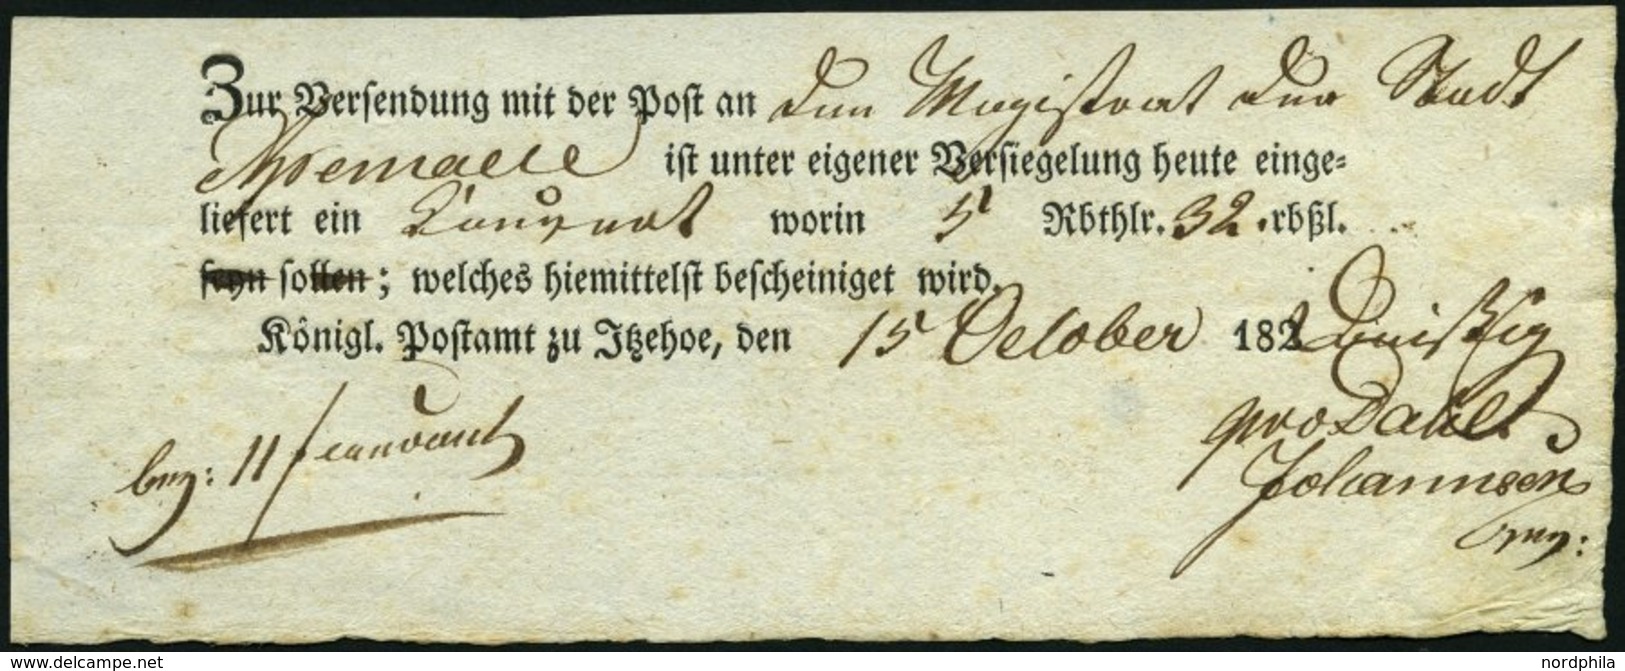 Zur Verſendung mit der Poſt an den Magistrat der Stadt
iſt unter eigener Verſiegelung heute einge⸗
liefert ein Couvert worin 5 Rbthlr. 32 rbßl.
ſeyn ſollen; welches hiemittelſt beſcheiniget wird.
Königl. Poſtamt zu Itzehoe, den 15 October 182 dreißig
bez: 11
pro
Johannsen
www.delcampe.net
nordphila